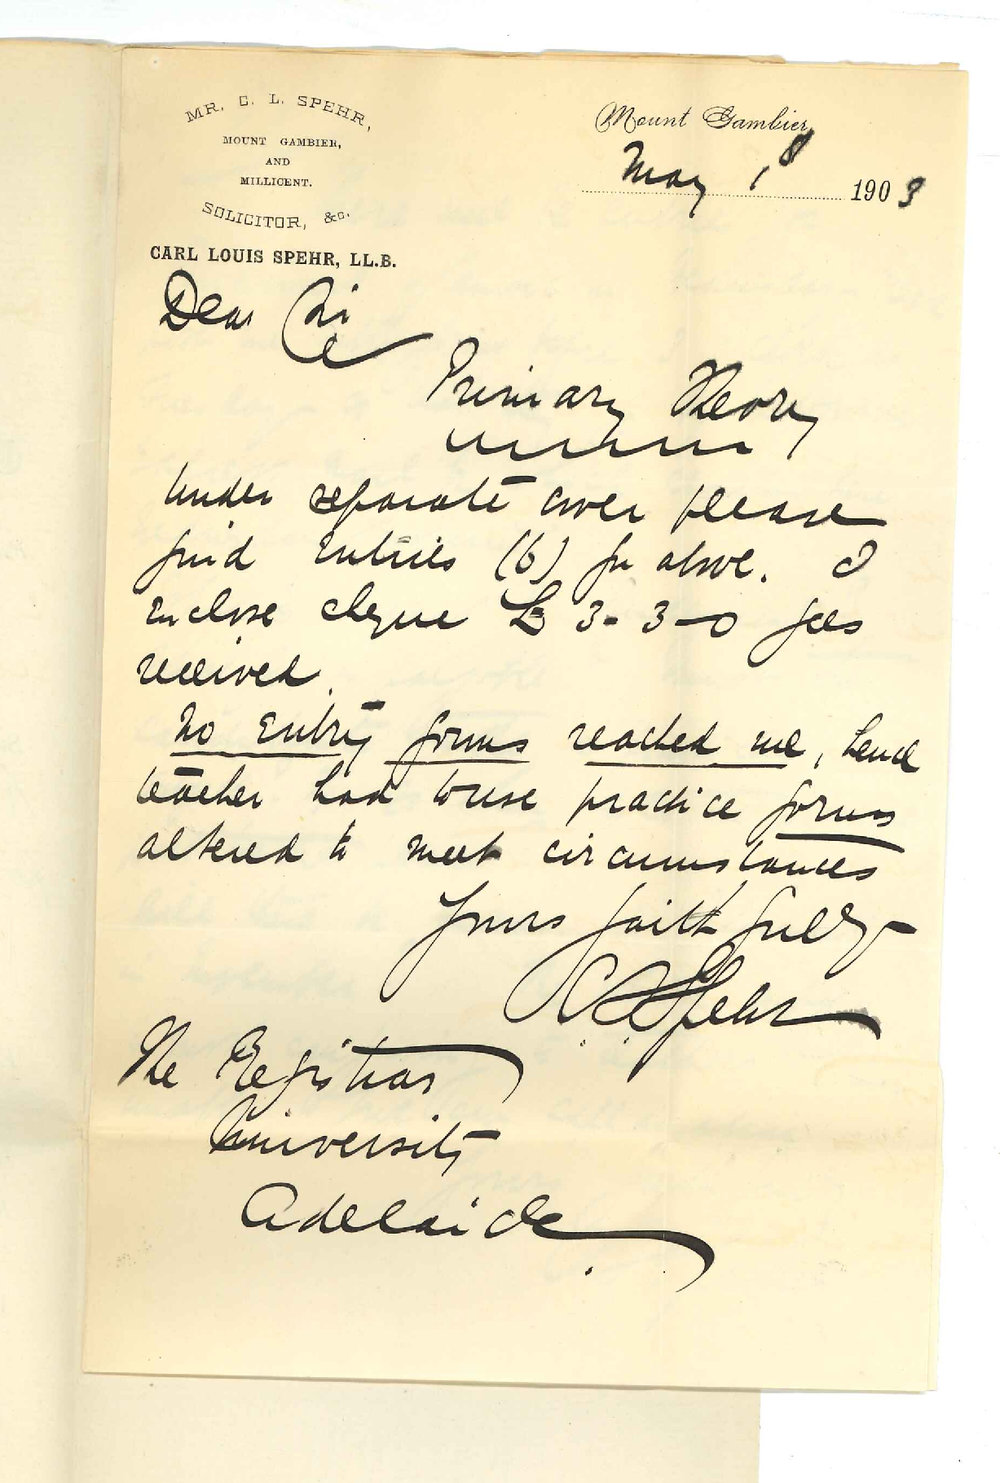 MR. C. L. SPEHR,
MOUNT GAMBIER,
AND
MILLICENT.
SOLICITOR, &c.
CARL LOUIS SPEHR, LL.B.
Mount Gambier,
May 18 1903
Dear Sir
Primary Theory
Under separate cover please
find entries (6) for above. I
enclose cheque £3-3-0 fees
received.
No Entry forms reached me, hence
teacher had to use practice forms
altered to meet circumstances
Yours faithfully
C L Spehr
The Registrar
University
Adelaide